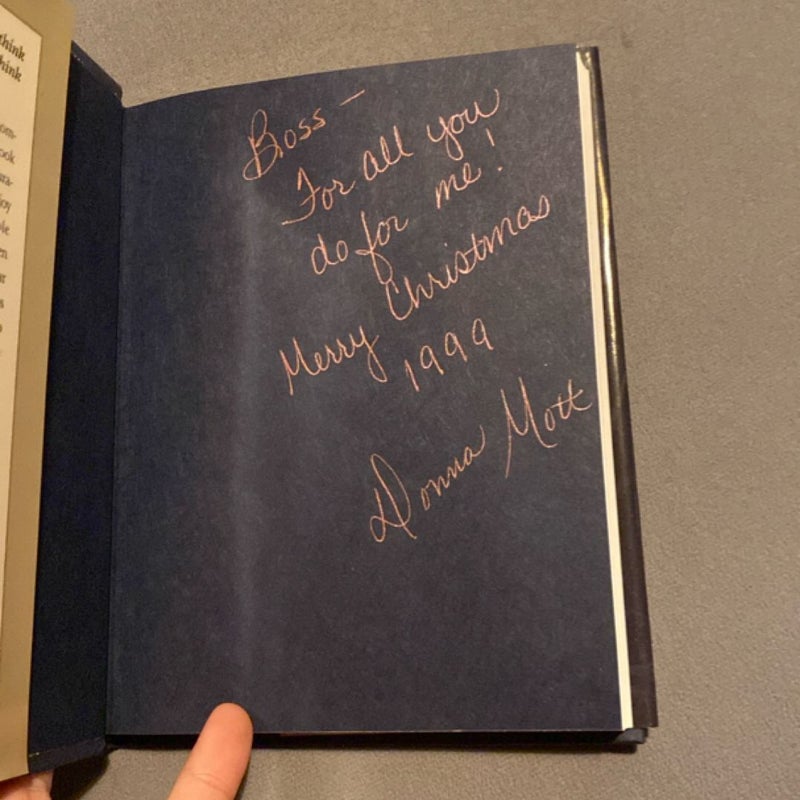 think
think
Boss —
For all you
do for me!
Merry Christmas
1999
Donna Mott